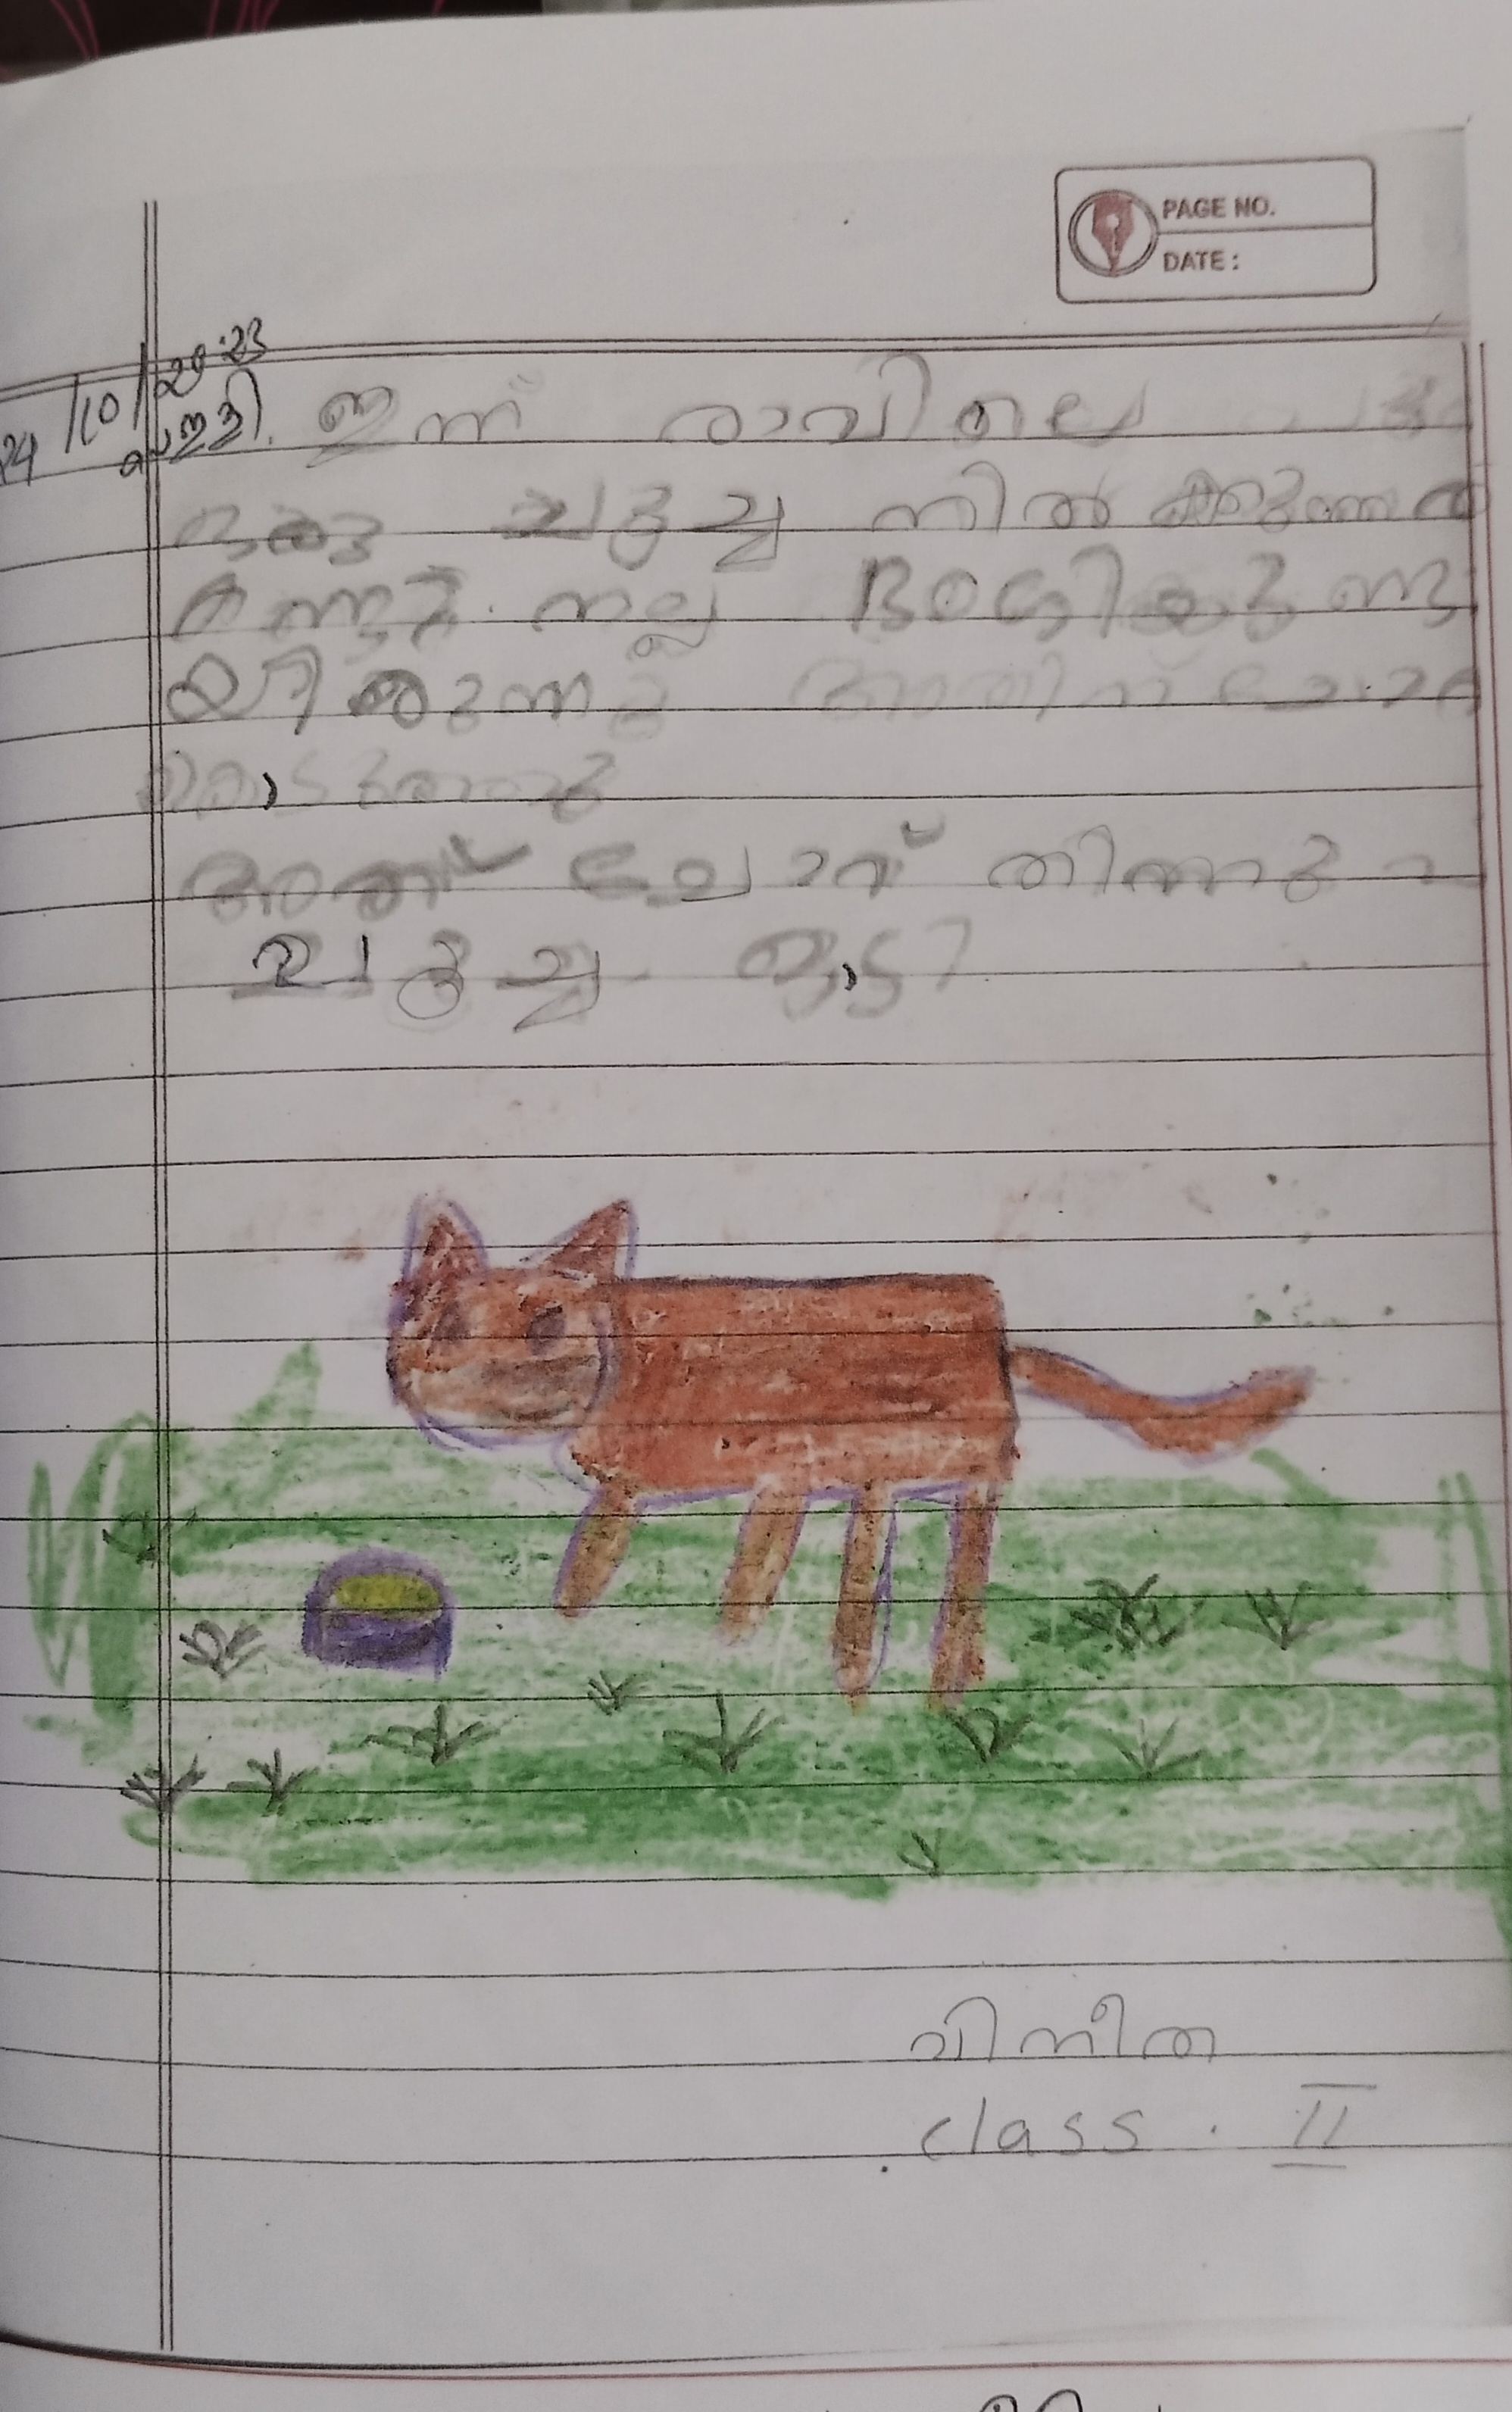 PAGE NO.
DATE :
24/10/2023
ഇന്ന് രാവിലെ
ഒരു പൂച്ച നിൽക്കുന്നത്
കണ്ടു. നല്ല ഭംഗിയുണ്ടാ
യിരുന്നു അതിന് ചോറ്
കൊടുത്തു
അത് ചോറ് തിന്നു
പൂച്ച ഓടി
വിനീത
class . II